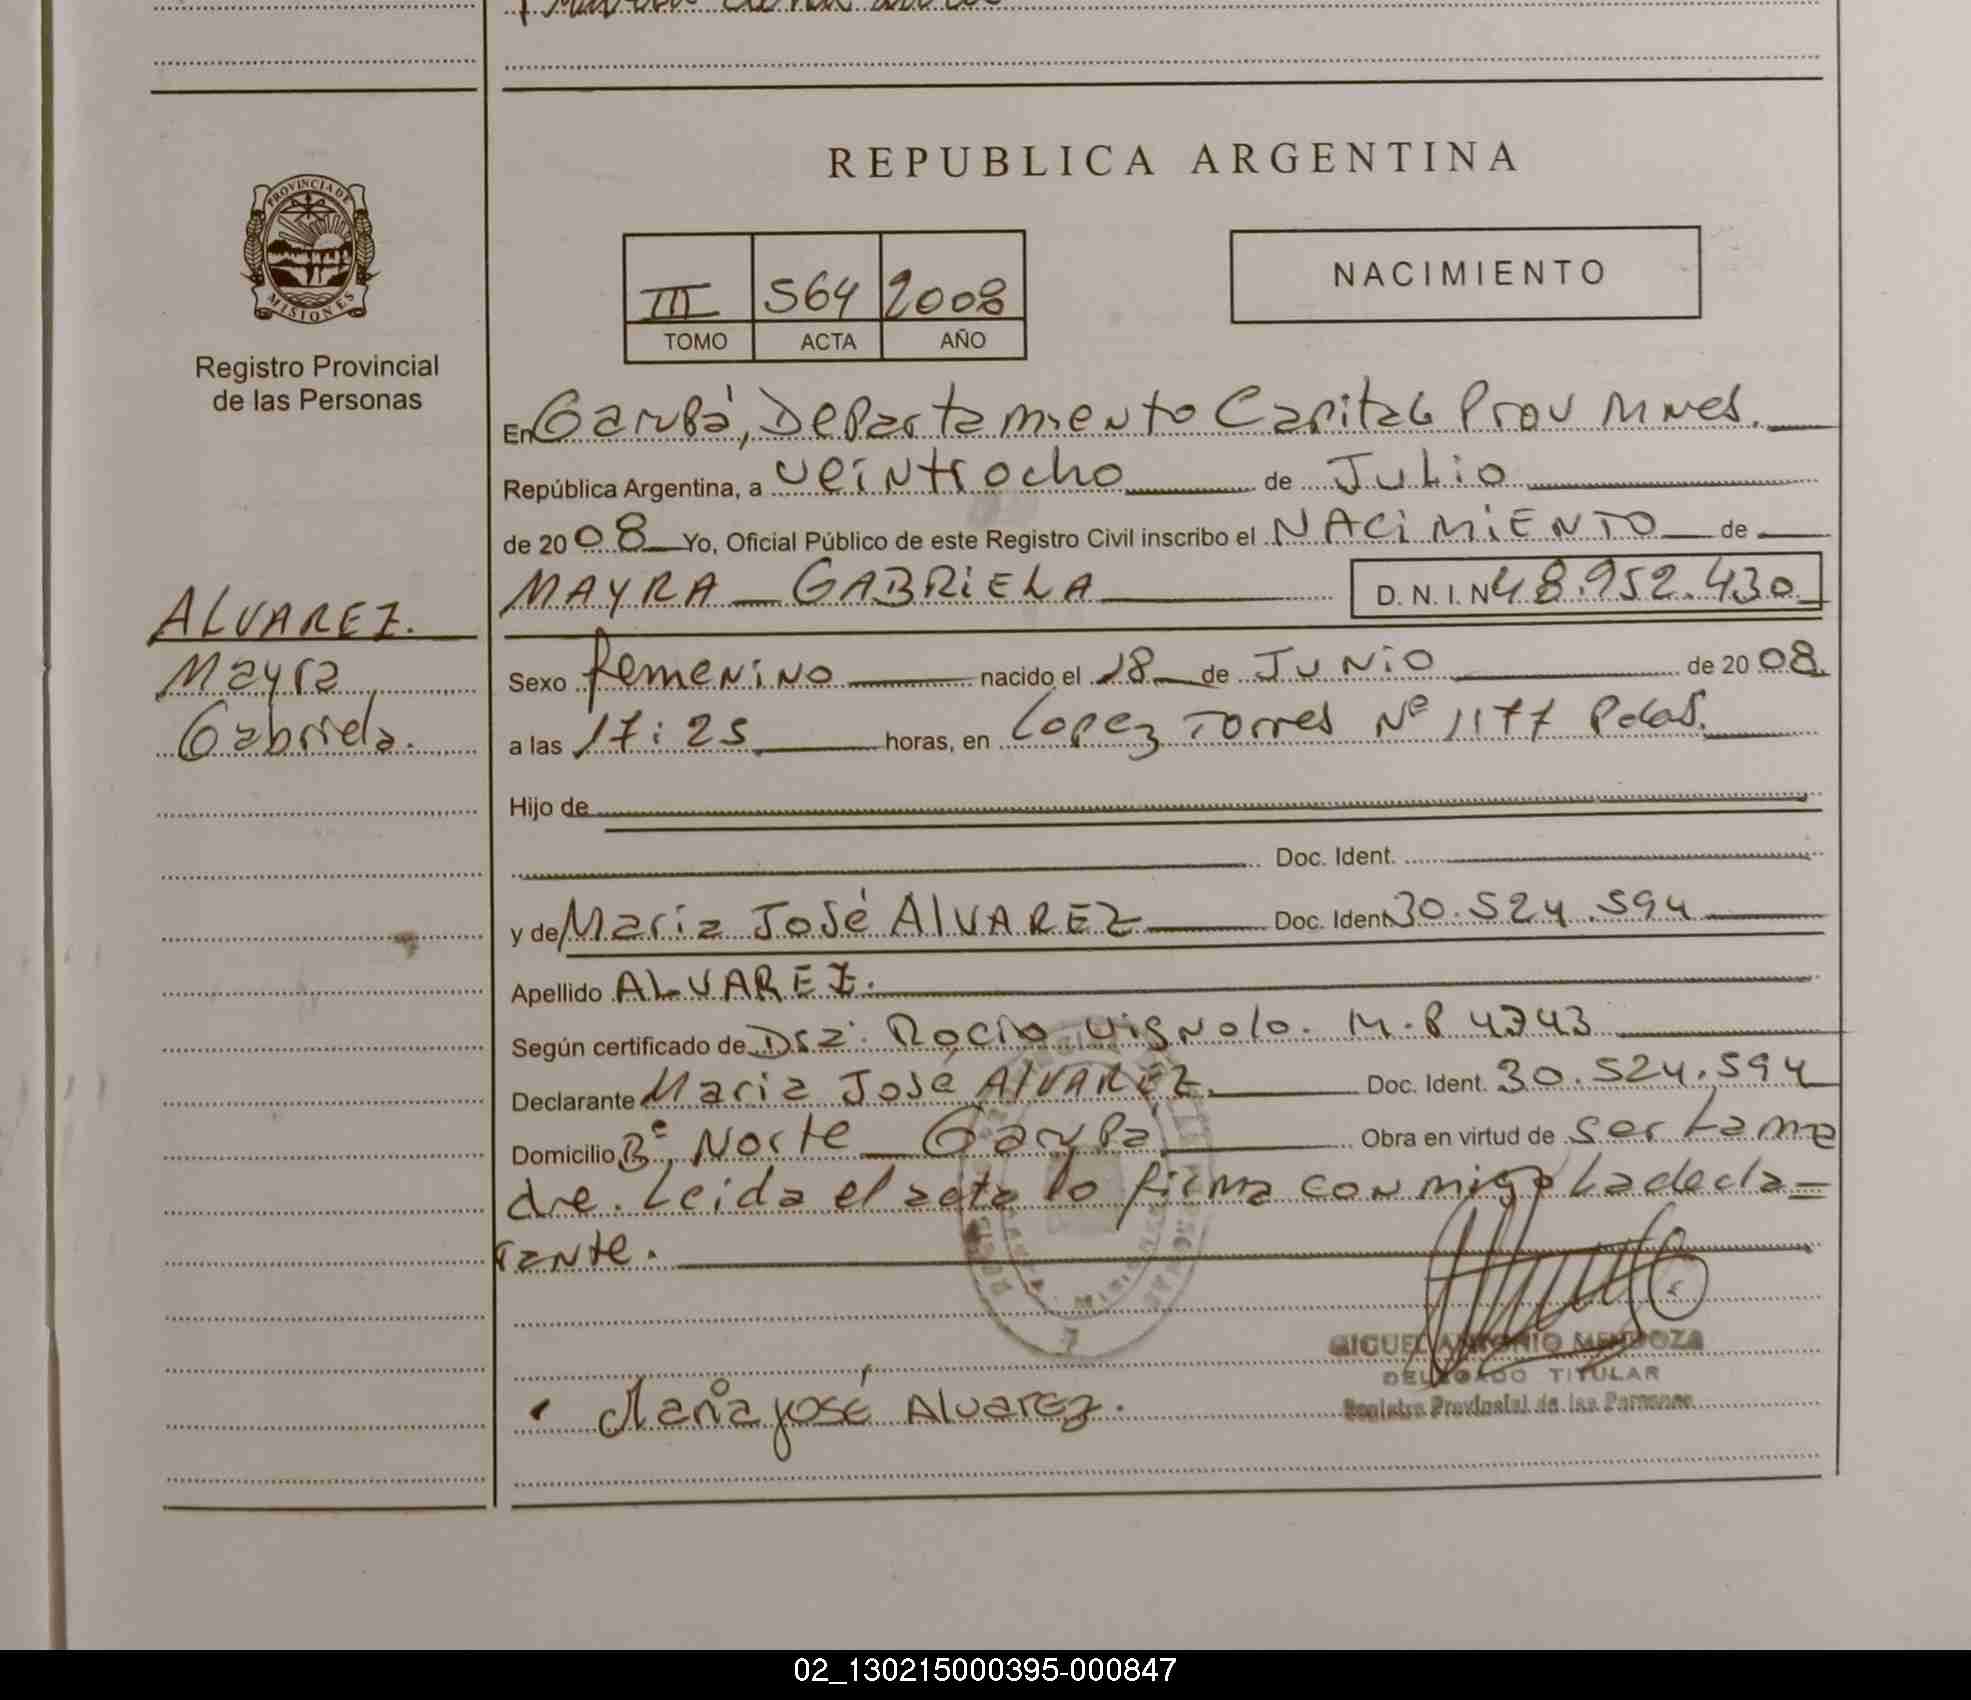 REPUBLICA ARGENTINA
PROVINCIA DE MISIONES
Registro Provincial
de las Personas
III 564 2008
TOMO ACTA AÑO
NACIMIENTO
En Garupá, Departamento Capital Prov Mnes.
República Argentina, a veintiocho de Julio
de 2008 Yo, Oficial Público de este Registro Civil inscribo el NACIMIENTO de
MAYRA GABRIELA D. N. I. N 48.952.430
ALVAREZ.
Mayra
Gabriela.
Sexo femenino nacido el 18 de JUNIO de 2008
a las 17:25 horas, en Lopez Torres Nº 1177 Pdas.
Hijo de
Doc. Ident.
y de Maria José ALVAREZ Doc. Ident. 30.524.594
Apellido ALVAREZ.
Según certificado de Dra. Rocio Vignolo. M.P 4743
Declarante Maria José ALVAREZ. Doc. Ident. 30.524.594
Domicilio Bº Norte Garupá Obra en virtud de ser La ma
dre. Leida el acta lo firma conmigo La decla=
rante.
MIGUEL ANTONIO MENDOZA
DELEGADO TITULAR
Registro Provincial de las Personas
Maria José Alvarez.
02_130215000395-000847